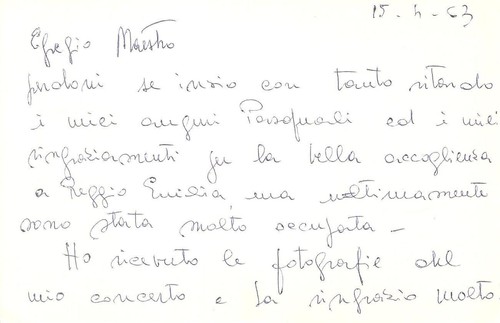 15-4-63
Egregio Maestro
perdoni se invio con tanto ritardo
i miei auguri Pasquali ed i miei
ringraziamenti per la bella accoglienza
a Reggio Emilia, ma ultimamente
sono stata molto occupata -
Ho ricevuto le fotografie del
mio concerto e La ringrazio molto.